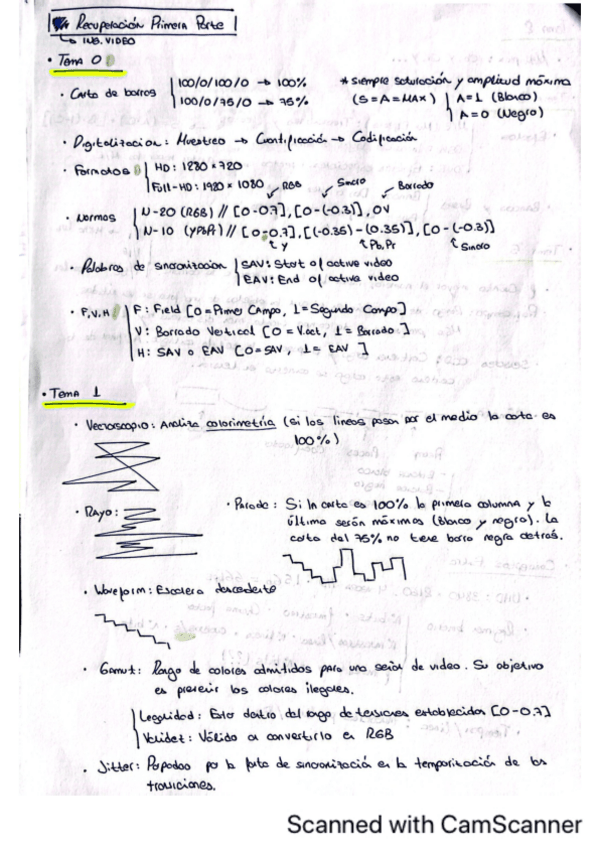 Recuperación Primera Parte
↳ LAB. VIDEO
• Tema 0
• Carta de barras | 100/0/100/0 → 100%
| 100/0/75/0 → 75%
* siempre saturación y amplitud máxima
(S=A=MAX) | A=1 (Blanco)
| A=0 (Negro)
• Digitalización: Muestreo → Cuantificación → Codificación
• Formatos | HD: 1280 x 720
| Full-HD: 1920 x 1080
RGB Sincro Borrado
• Normas | N-20 (RGB) // [0-0.7], [0-(-0.3)], 0V
| N-10 (YPbPr) // [0-0.7], [(-0.35)-(0.35)], [0-(-0.3)]
↑ Y ↑ Pb, Pr ↑ Sincro
• Palabras de sincronización | SAV: Start of active video
| EAV: End of active video
• F, V, H | F: Field [0=Primer Campo, 1=Segundo Campo]
| V: Borrado Vertical [0=V.act, 1=Borrado]
| H: SAV o EAV [0=SAV, 1=EAV]
• Tema 1
• Vectorscopio: Analiza colorimetría (si las lineas pasan por el medio la carta es
100%)
• Rayo:
• Parade: Si la carta es 100% la primera columna y la
última serán máximos (blanco y negro). La
carta del 75% no tiene barra negra detrás.
• Waveform: Escalera descendente
• Gamut: Rango de colores admitidos para una señal de video. Su objetivo
es prevenir los colores ilegales.
| Legalidad: Esta dentro del rango de tensiones establecidas [0-0.7]
| Validez: Válido al convertirlo en RGB
• Jitter: por la falta de sincronización en la temporización de las
transiciones.
Scanned with CamScanner